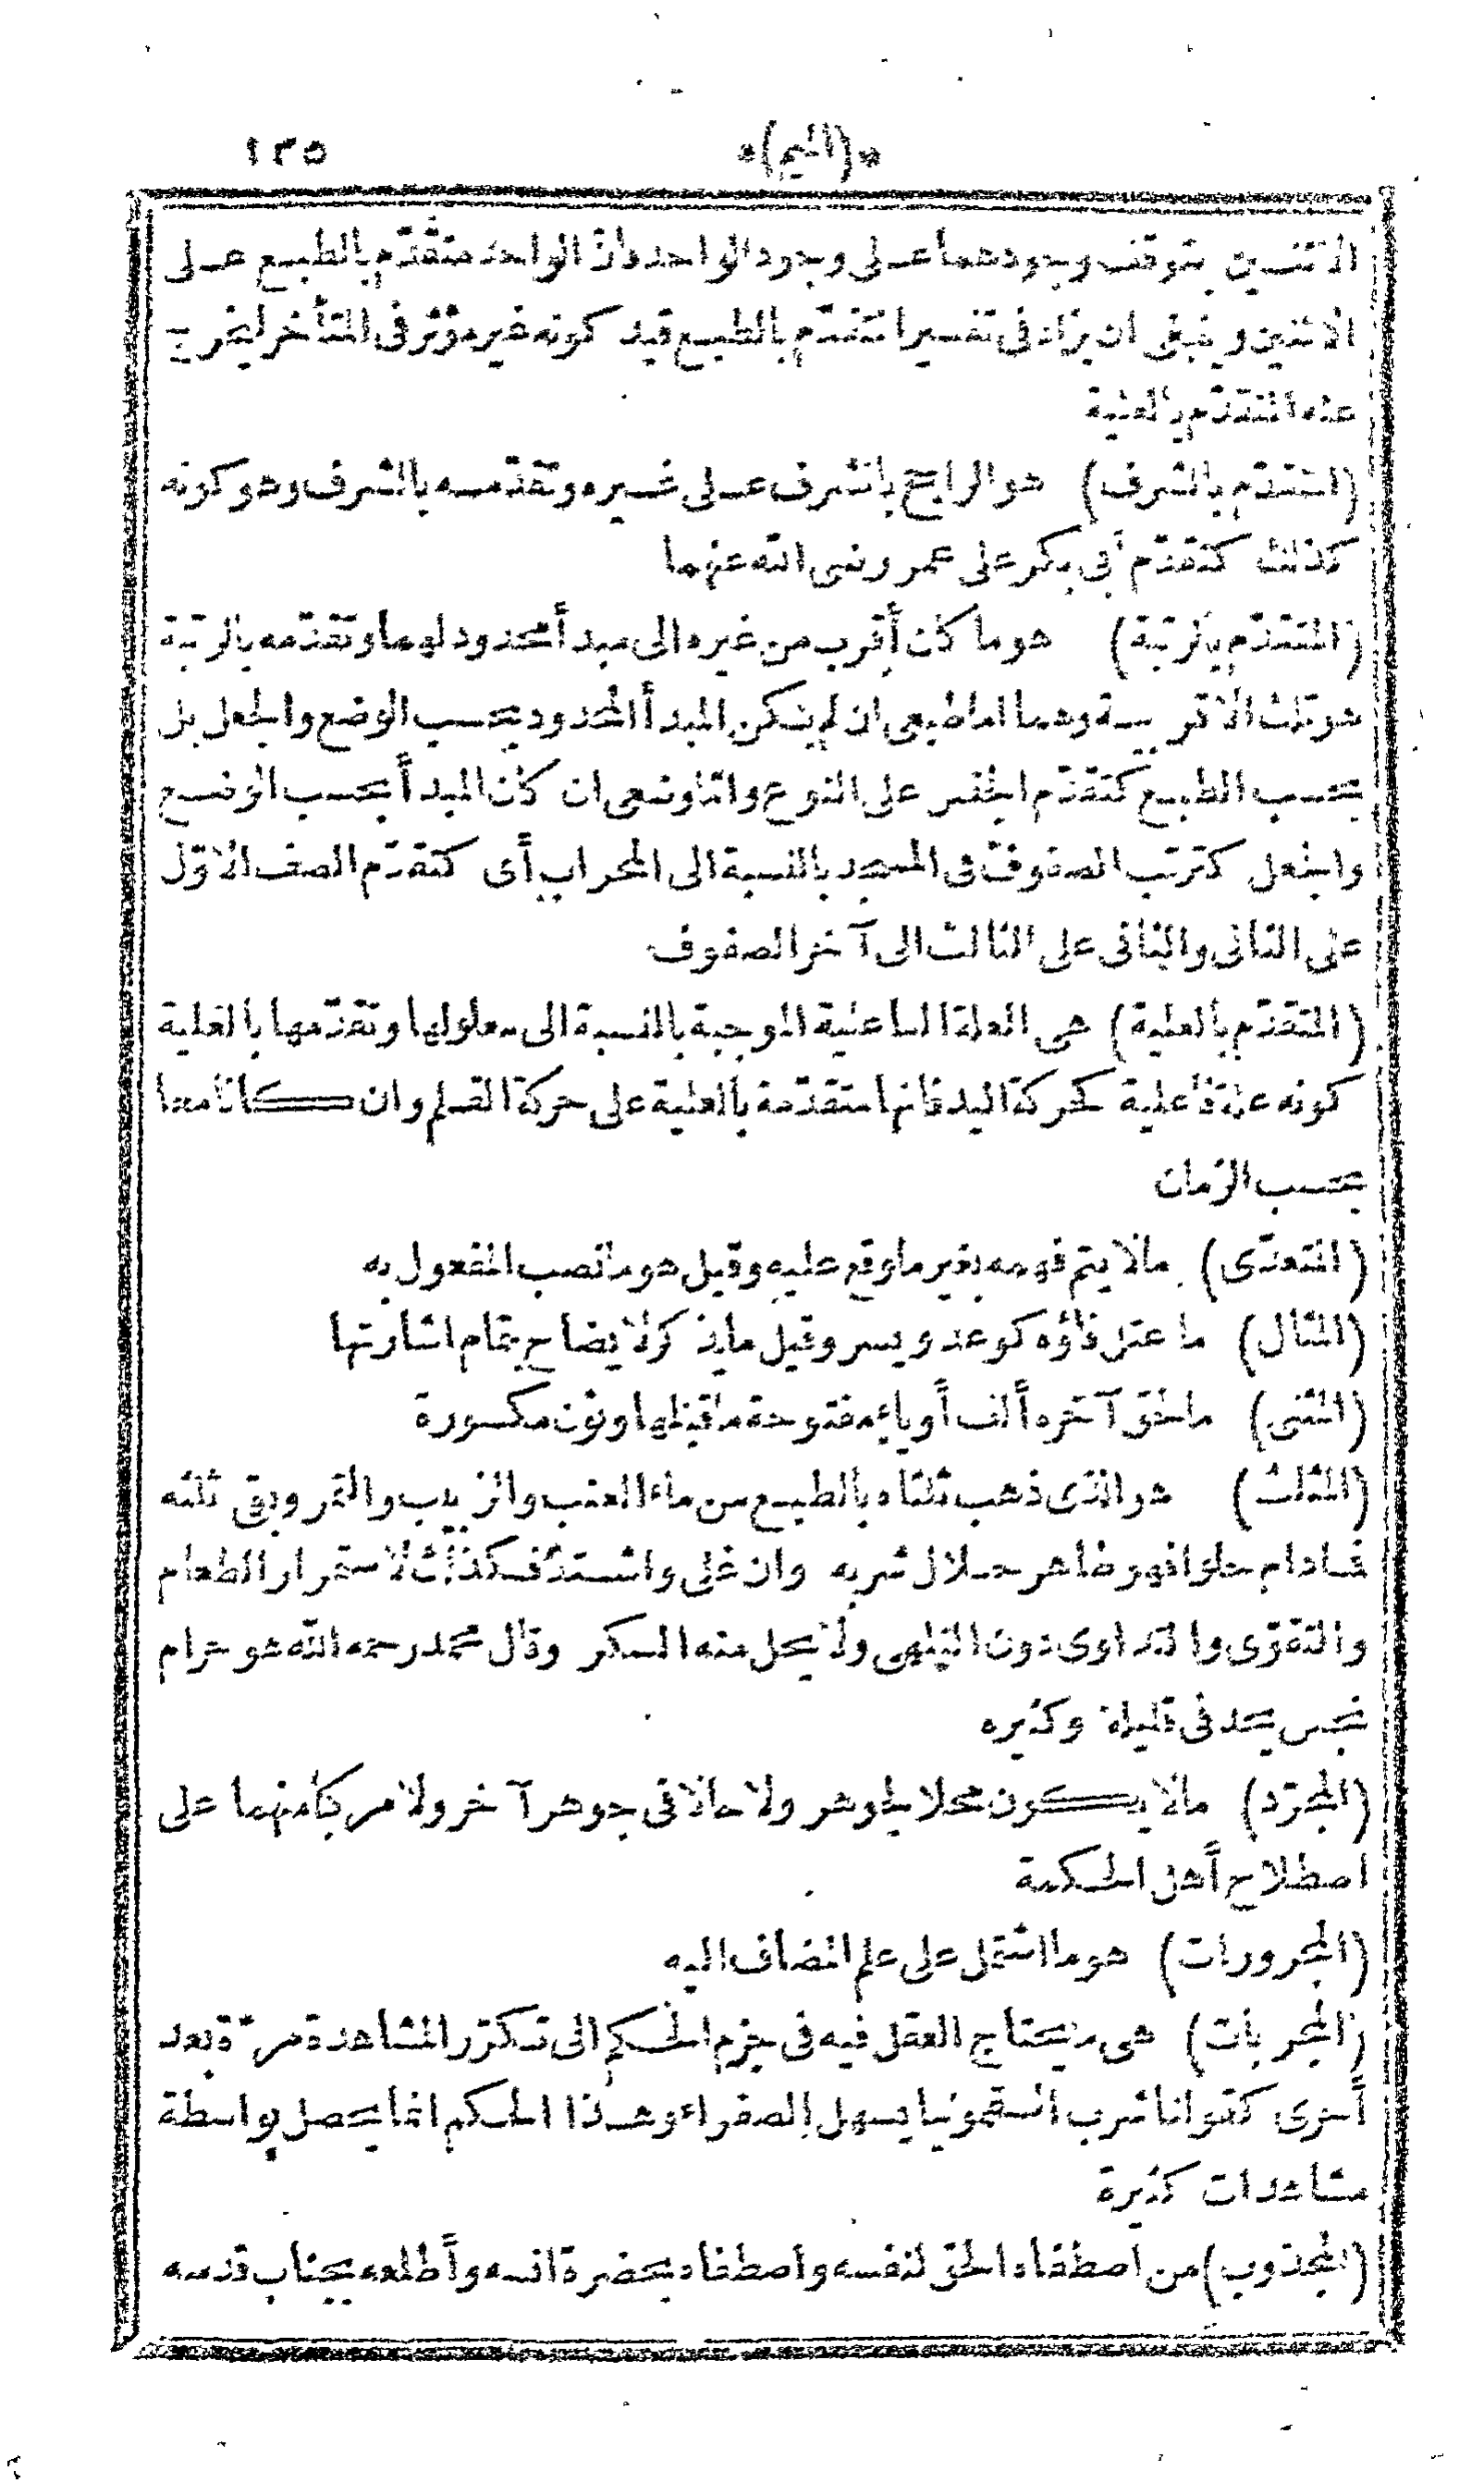 *(الميم)* ١٣٥
الاثنين يتوقف وجودهما على وجود الواحد فان الواحد متقدّم بالطبع على
الاثنين وينبغى ان يزاد فى تفسير المتقدّم بالطبع قيد كونه غير مؤثر فى المتأخر ليخرج
عنه المتقدّم بالعلية
(المتقدّم بالشرف) هو الراجح بالشرف على غيره وتقدّمه بالشرف وهو كونه
كذلك كتقدّم أبى بكر على عمر رضى الله عنهما
(المتقدّم بالرتبة) هو ما كان أقرب من غيره الى مبدأ محدود لهما وتقدّمه بالرتبة
هو تلك الاقربية وهما اما طبيعى ان لم يكن المبدأ المحدود بحسب الوضع والجعل بل
بحسب الطبع كتقدّم الجنس على النوع واما وضعى ان كان المبدأ بحسب الوضع
والجعل كترتب الصفوف فى المسجد بالنسبة الى المحراب أى كتقدّم الصف الاوّل
على الثانى والثانى على الثالث الى آخر الصفوف
(المتقدّم بالعلية) هى العلة الفاعلية الموجبة بالنسبة الى معلولها وتقدّمها بالعلية
كونه علة فاعلية كحركة اليد فانها متقدّمة بالعلية على حركة القلم وان كانا معا
بحسب الزمان
(المتعدّى) مالا يتم فهمه بغير ما وقع عليه وقيل هو ما نصب المفعول به
(المثال) ما عتل فاؤه كوعد ويسر وقيل ما يذكر لايضاح بتمام اشارتها
(المثنى) ما لحق آخره ألف أو ياء مفتوحة ما قبلها ونون مكسورة
(المثلث) هو الذى ذهب ثلثاه بالطبع من ماء العنب والزبيب والتمر وبقى ثلثه
فمادام حلوا فهو طاهر حلال شربه وان غلى واشتدّ فكذلك لاستمرار الطعام
والتقوّى والتداوى دون التلهى ولا يحل منه السكر وقال محمد رحمه الله هو حرام
نجس يحد فى قليله وكثيره
(المجرّد) مالا يكون محلا لجوهر ولا حالا فى جوهر آخر ولا مركبا منهما على
اصطلاح أهل الحكمة
(المجرورات) هو ما اشتمل على علم المضاف اليه
(المجربات) هى ما يحتاج العقل فيه فى جزم الحكم الى تكرّر المشاهدة مرّة بعد
أخرى كقولنا شرب السقمونيا يسهل الصفراء وهذا الحكم انما يحصل بواسطة
مشاهدات كثيرة
(المجذوب) من اصطفاه الحق لنفسه واصطفاه بحضرة انسه وأطلعه بجناب قدسه